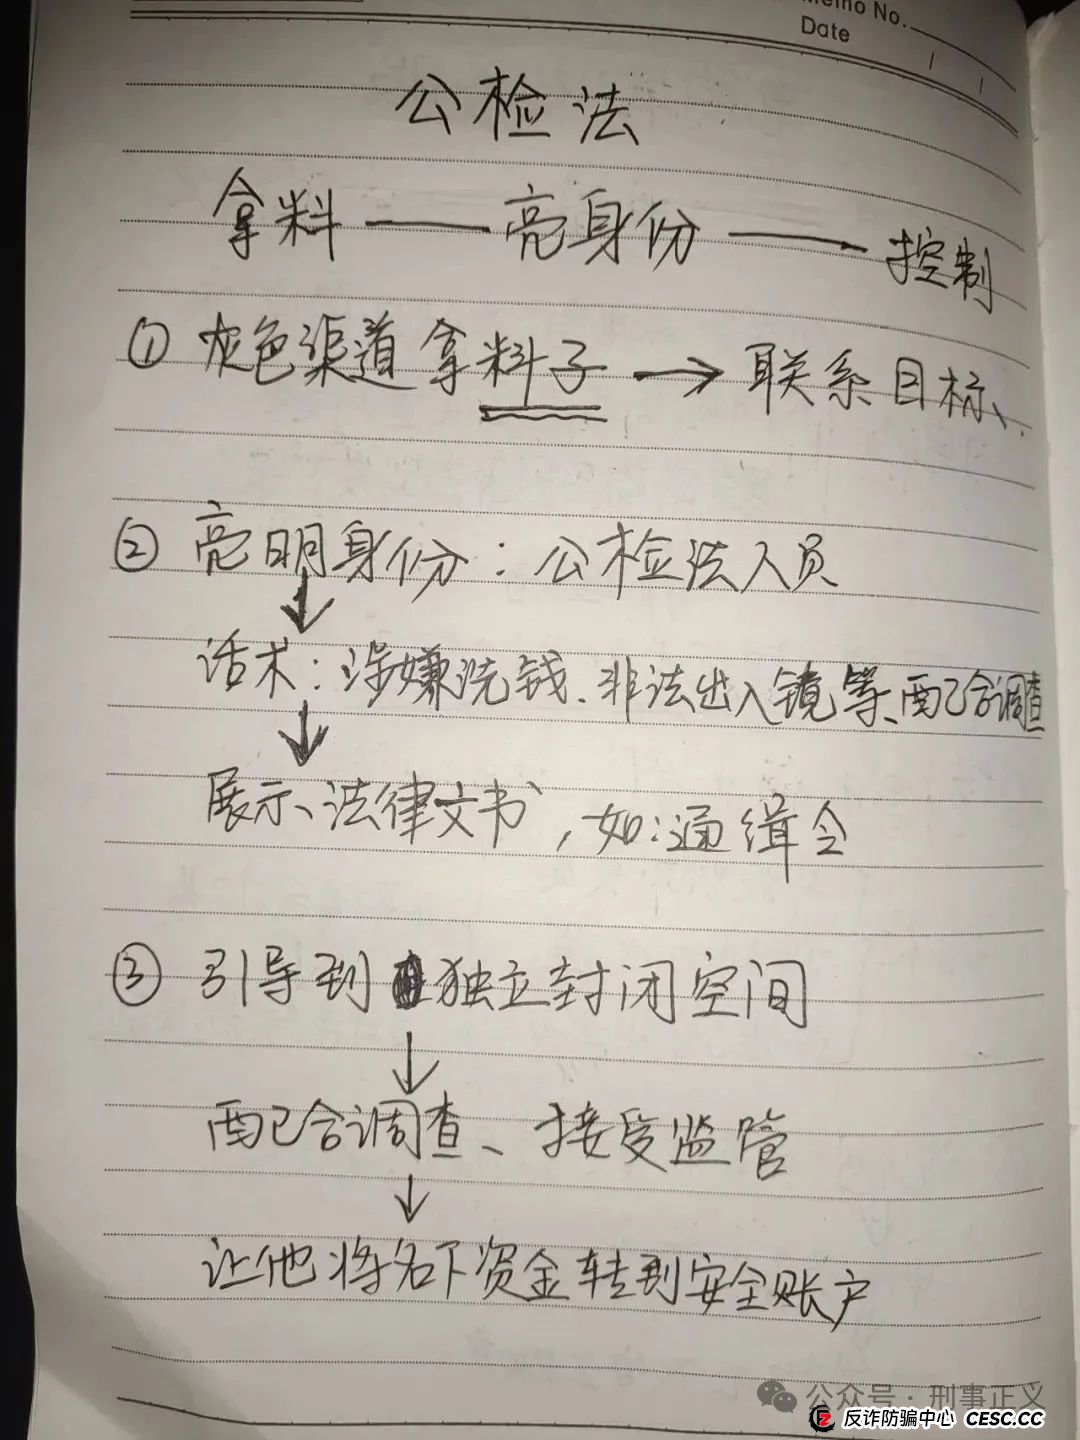 Memo No.
Date
公检法
拿料——亮身份——控制
① 灰色渠道拿料子→联系目标、
② 亮明身份：公检法人员
↓
话术：涉嫌洗钱、非法出入镜等、配合调查
↓
展示法律文书，如：通缉令
③ 引导到独立封闭空间
↓
配合调查、接受监管
↓
让他将名下资金转到安全账户
公众号·刑事正义
反诈防骗中心 CESC.CC